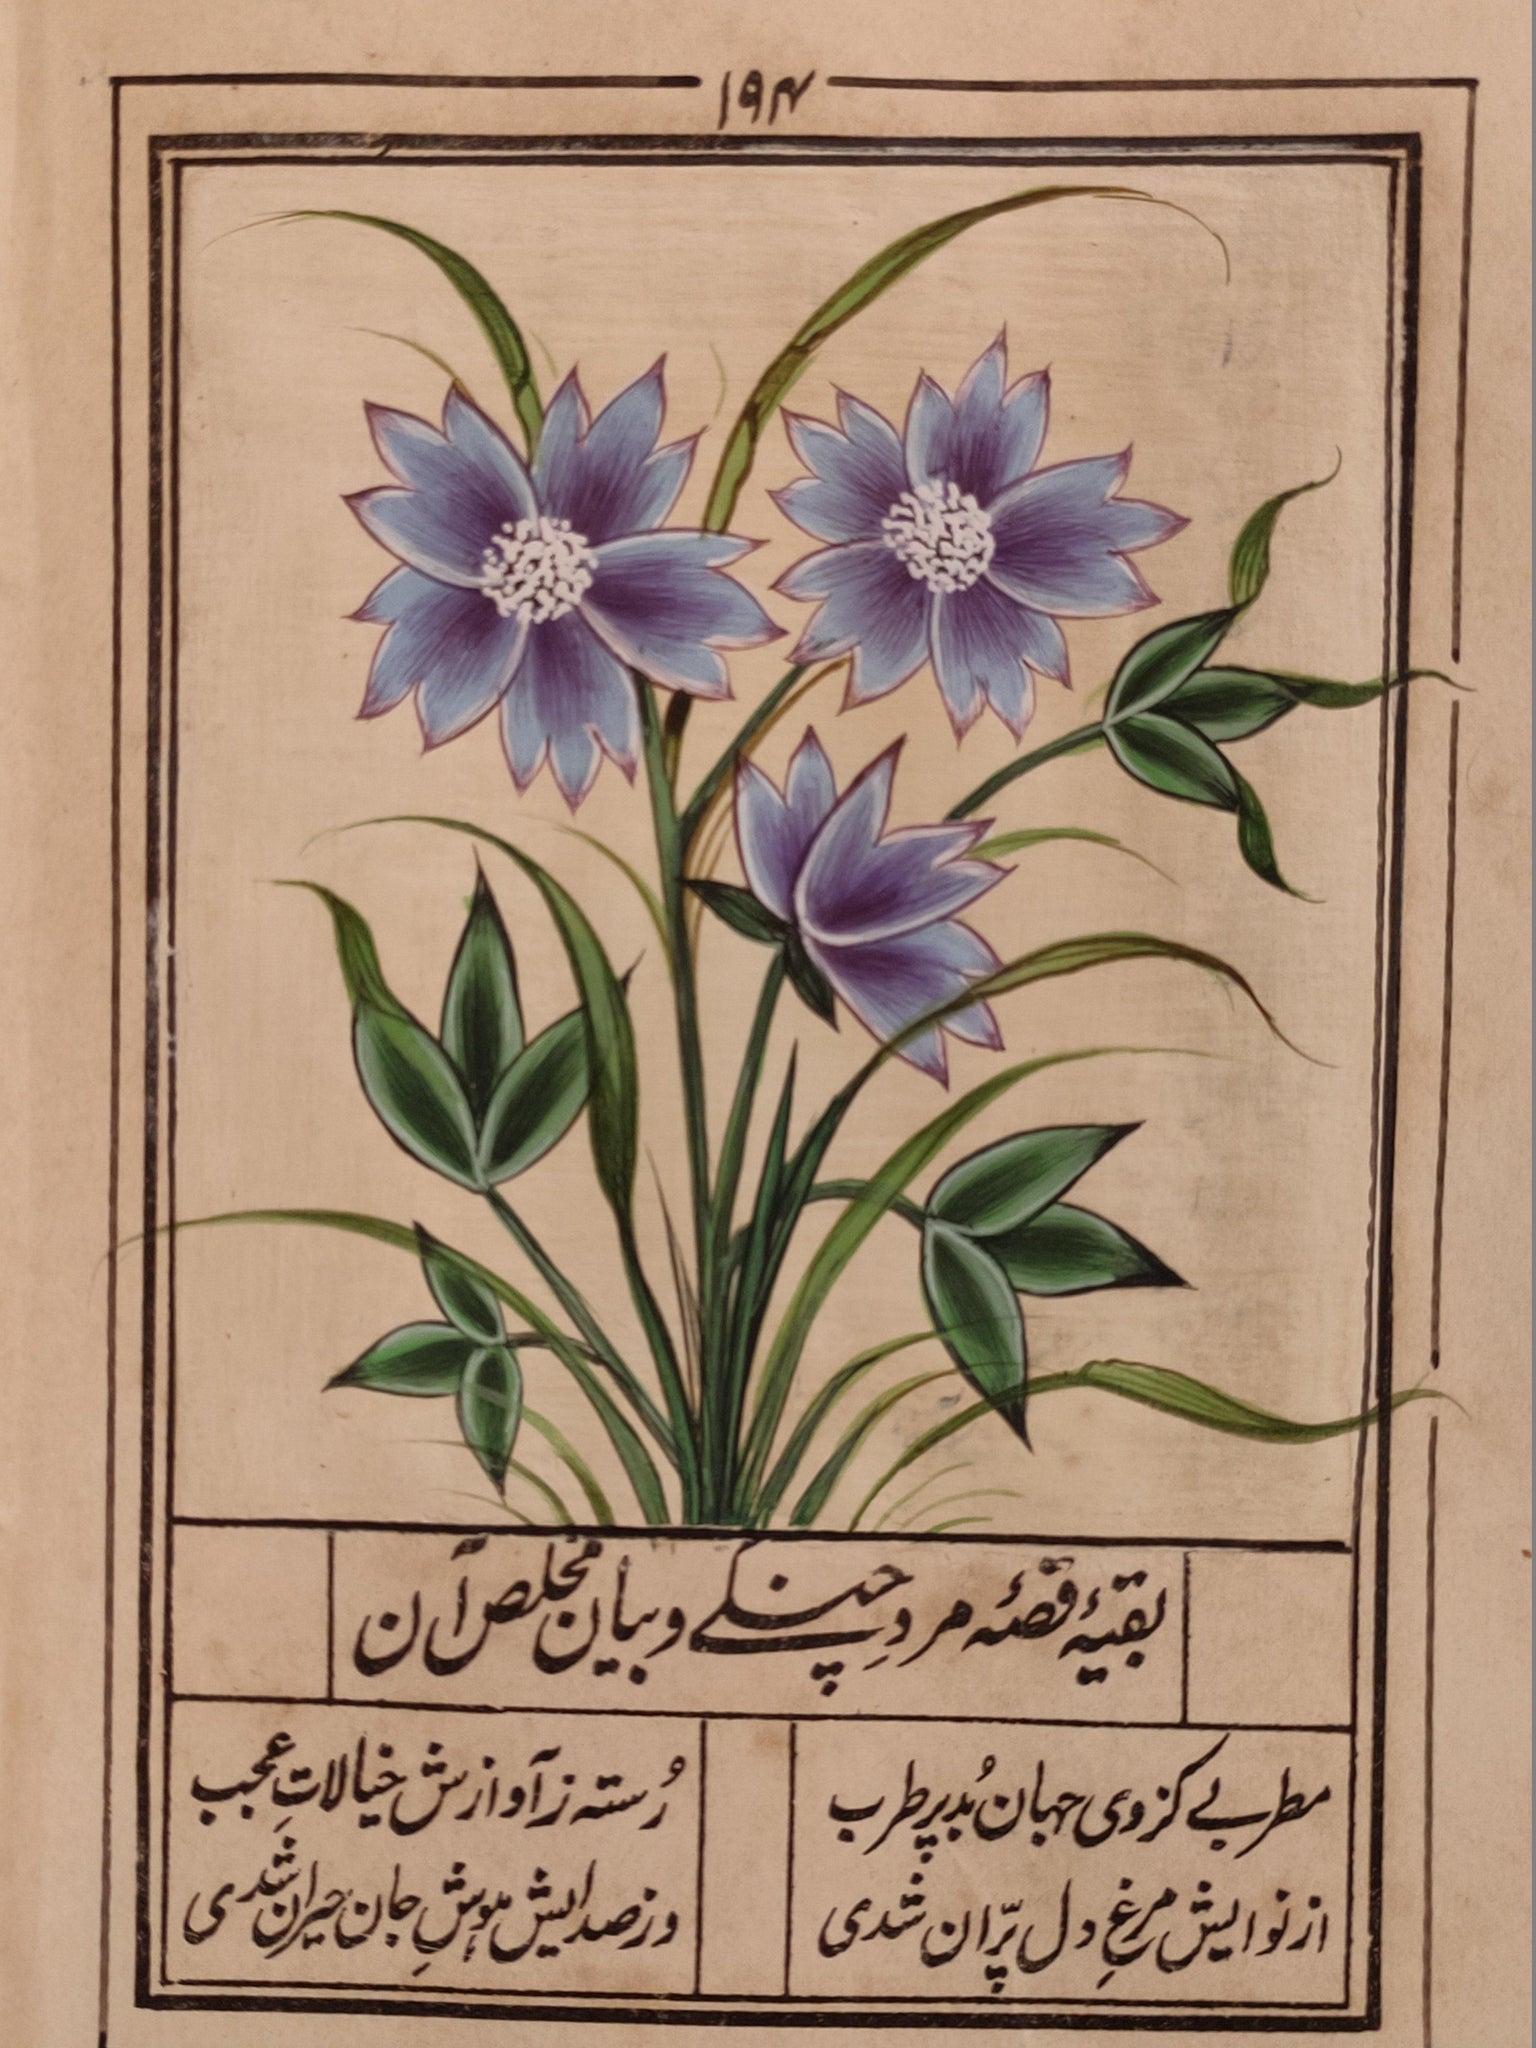 ۱۹۴
بقیۂ قصۂ مردِ چنگے و بیان مخلص آن
مطربے کز وی جهان بُد پر طرب رُسته ز آوازش خیالاتِ عجب
از نوایش مرغِ دل پرّان شدی وز صدایش هوشِ جان حیران شدی